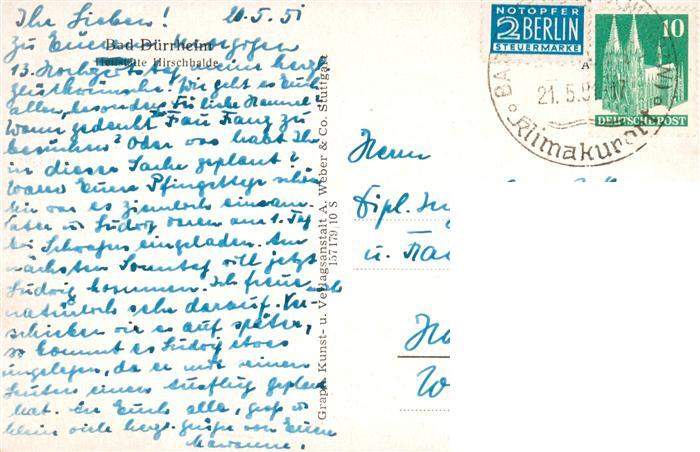 Ihr Lieben! 20.5.51
Zu Eurem morgigen
Bad Dürrheim
Heilstätte Hirschhalde
13. Hochzeitstag meine herzl.
Glückwünsche! Wie geht es Euch
allen, besonders Dir liebe Hannel
Wann gedenkt Frau Franz zu
kommen? Oder was habt Ihr
in dieser Sache geplant?
Waren Eure Pfingsttage schön
hier war es ziemlich einsam.
Vater u. Ludwig waren am 1. Tag
bei Schwagers eingeladen. Am
nächsten Sonntag will jetzt
Ludwig kommen. Ich freue mich
natürlich sehr darauf. Ver-
schieben wir es auf später,
so kommt es Ludwig etwas
ungelegen, da er mit seinen
Leuten einen Ausflug geplant
hat. Euch alle, groß u.
klein viele herzl. Grüße von Eurer
Marianne.
Graph. Kunst- u. Verlagsanstalt A. Weber & Co. Stuttgart
157179/10 S
NOTOPFER
2 BERLIN
STEUERMARKE
10
DEUTSCHE POST
BA
21.5.51-17
Klimakurort
Herrn
Dipl. In
u. Frau